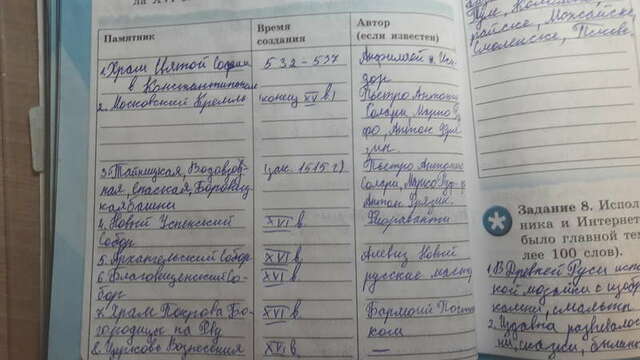 ла XVI
Памятник
Время
создания
Автор
(если известен)
1. Храм Святой Софии
в Константинополе
532 – 537
Анфимий и Иси-
дор
2. Московский Кремль
(конец XV в)
Пьетро Антонио
Солари, Марко Ру
фо, Антон Фря
зин.
3. Тайницкая, Водовзвод-
ная, Спаская, Боровиц-
кая башни
(зак. 1515 г)
Пьетро Антонио
Солари, Марко Руф
Антон Фрязин.
4. Новый Успенский
Собор
XVI в
Фиораванти
5. Архангельский Собор
XVI в.
Алевиз Новый
6. Благовещенский Со-
бор
XVI в
русские масте
7. Храм Покрова Бо-
городицы на Рву
XVI в.
Барма и Пост
ком
8. Церковь Вознесения
XVI в
—
Смоленске, Псков
Задание 8. Испол
ника и Интернет
было главной тем
лее 100 слов).
1. В Древней Руси
ной мозаики с изобр
камни, смальты
2. Издавна развивало